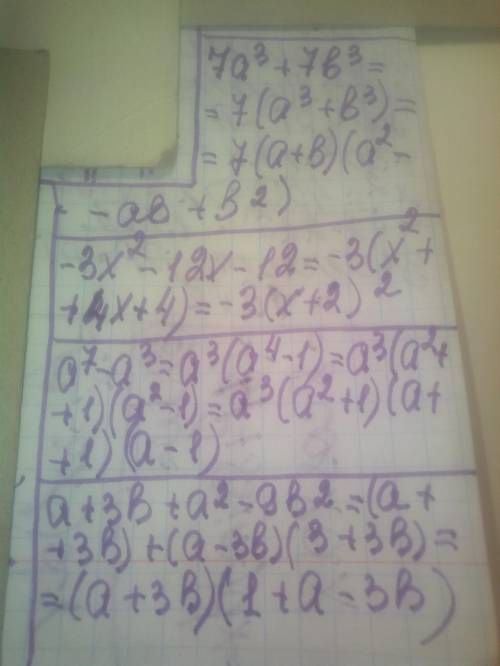 7a³+7b³=
=7(a³+b³)=
=7(a+b)(a²-
-ab+b²)
-3x²-12x-12=-3(x²+
+4x+4)=-3(x+2)²
a⁷-a³=a³(a⁴-1)=a³(a²+
+1)(a²-1)=a³(a²+1)(a+
+1)(a-1)
a+3b+a²-9b²=(a+
+3b)+(a-3b)(3+3b)=
=(a+3b)(1+a-3b)